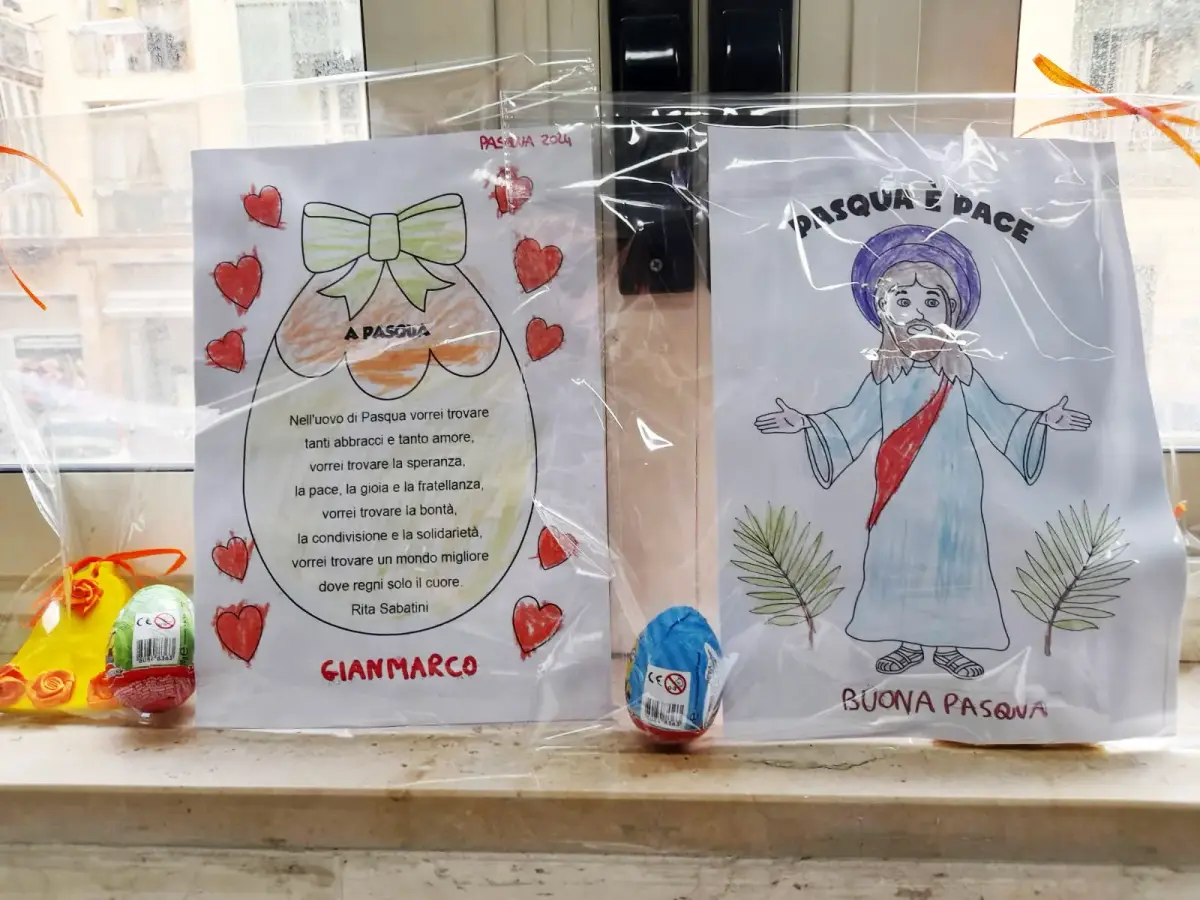 PASQUA 2024
A PASQUA
Nell'uovo di Pasqua vorrei trovare
tanti abbracci e tanto amore,
vorrei trovare la speranza,
la pace, la gioia e la fratellanza,
vorrei trovare la bontà,
la condivisione e la solidarietà,
vorrei trovare un mondo migliore
dove regni solo il cuore.
Rita Sabatini
GIANMARCO
PASQUA È PACE
BUONA PASQUA
CE
CE